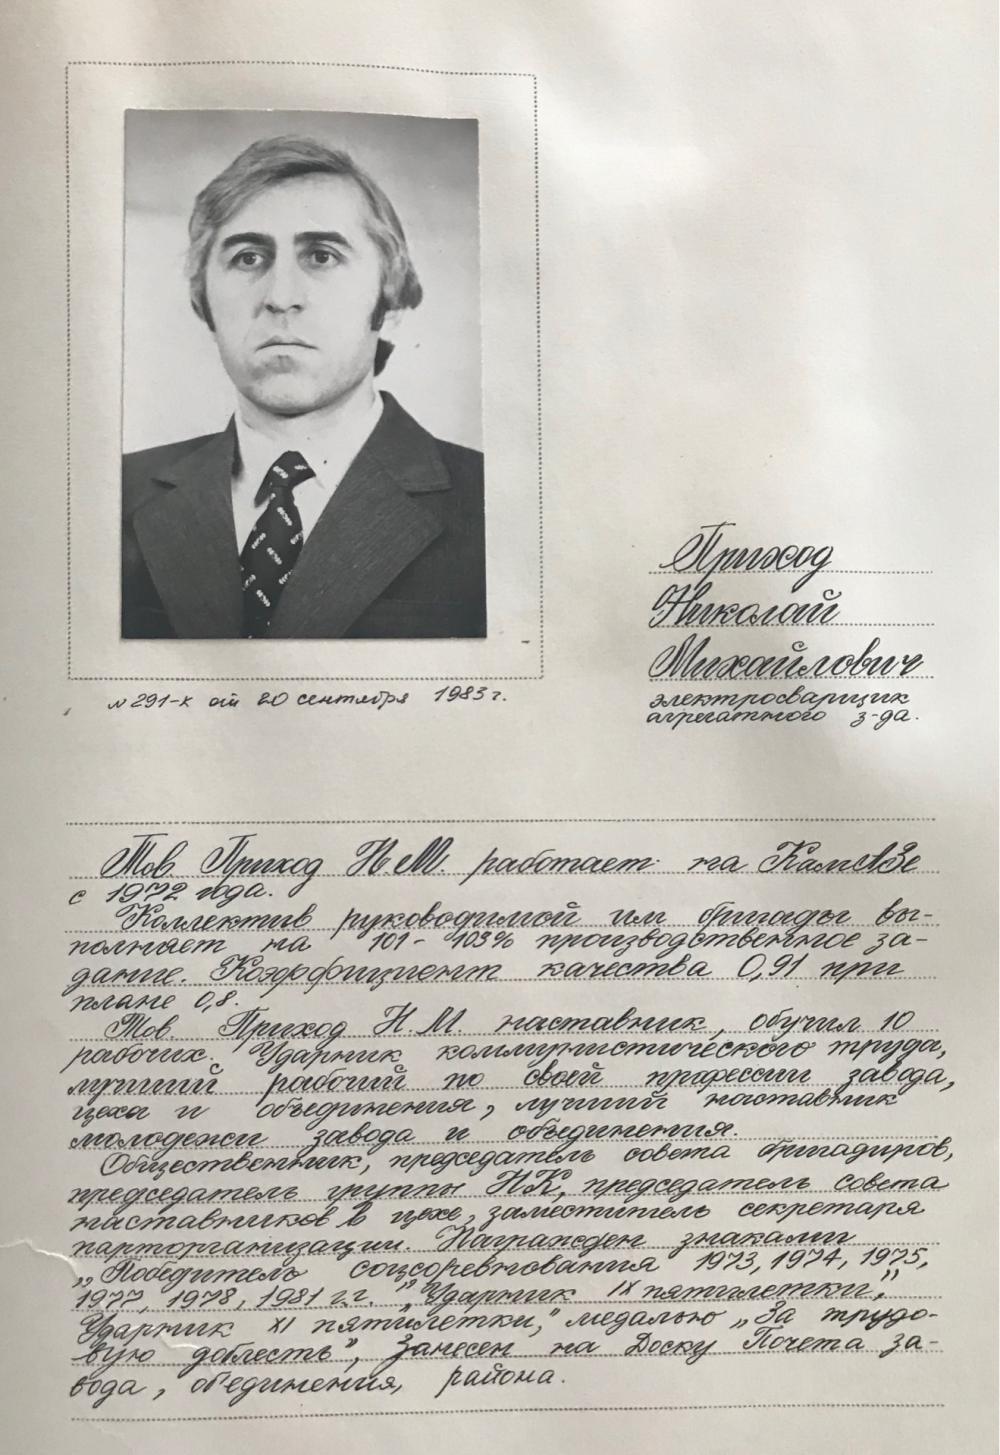 Приход
Николай
Михайлович
электросварщик
агрегатного з-да.
№ 291-к от 20 сентября 1983 г.
Тов. Приход Н.М. работает на КамАЗе
с 1972 года.
Коллектив руководимой им бригады вы-
полняет на 101- 103% производственное за-
дание. Коэффициент качества 0,91 при
плане 0,8.
Тов. Приход Н.М. наставник, обучил 10
рабочих. Ударник коммунистического труда,
лучший рабочий по своей профессии завода,
цеха и объединения, лучший наставник
молодежи завода и объединения.
Общественник, председатель совета бригадиров,
председатель группы НК, председатель совета
наставников в цехе, заместитель секретаря
парторганизации. Награжден знаками
„Победитель соцсоревнования 1973, 1974, 1975,
1977, 1978, 1981 г.г.” „Ударник IX пятилетки,”
Ударник XI пятилетки,” медалью „За трудо-
вую доблесть”, Занесен на Доску Почета за-
вода, объединения, района.